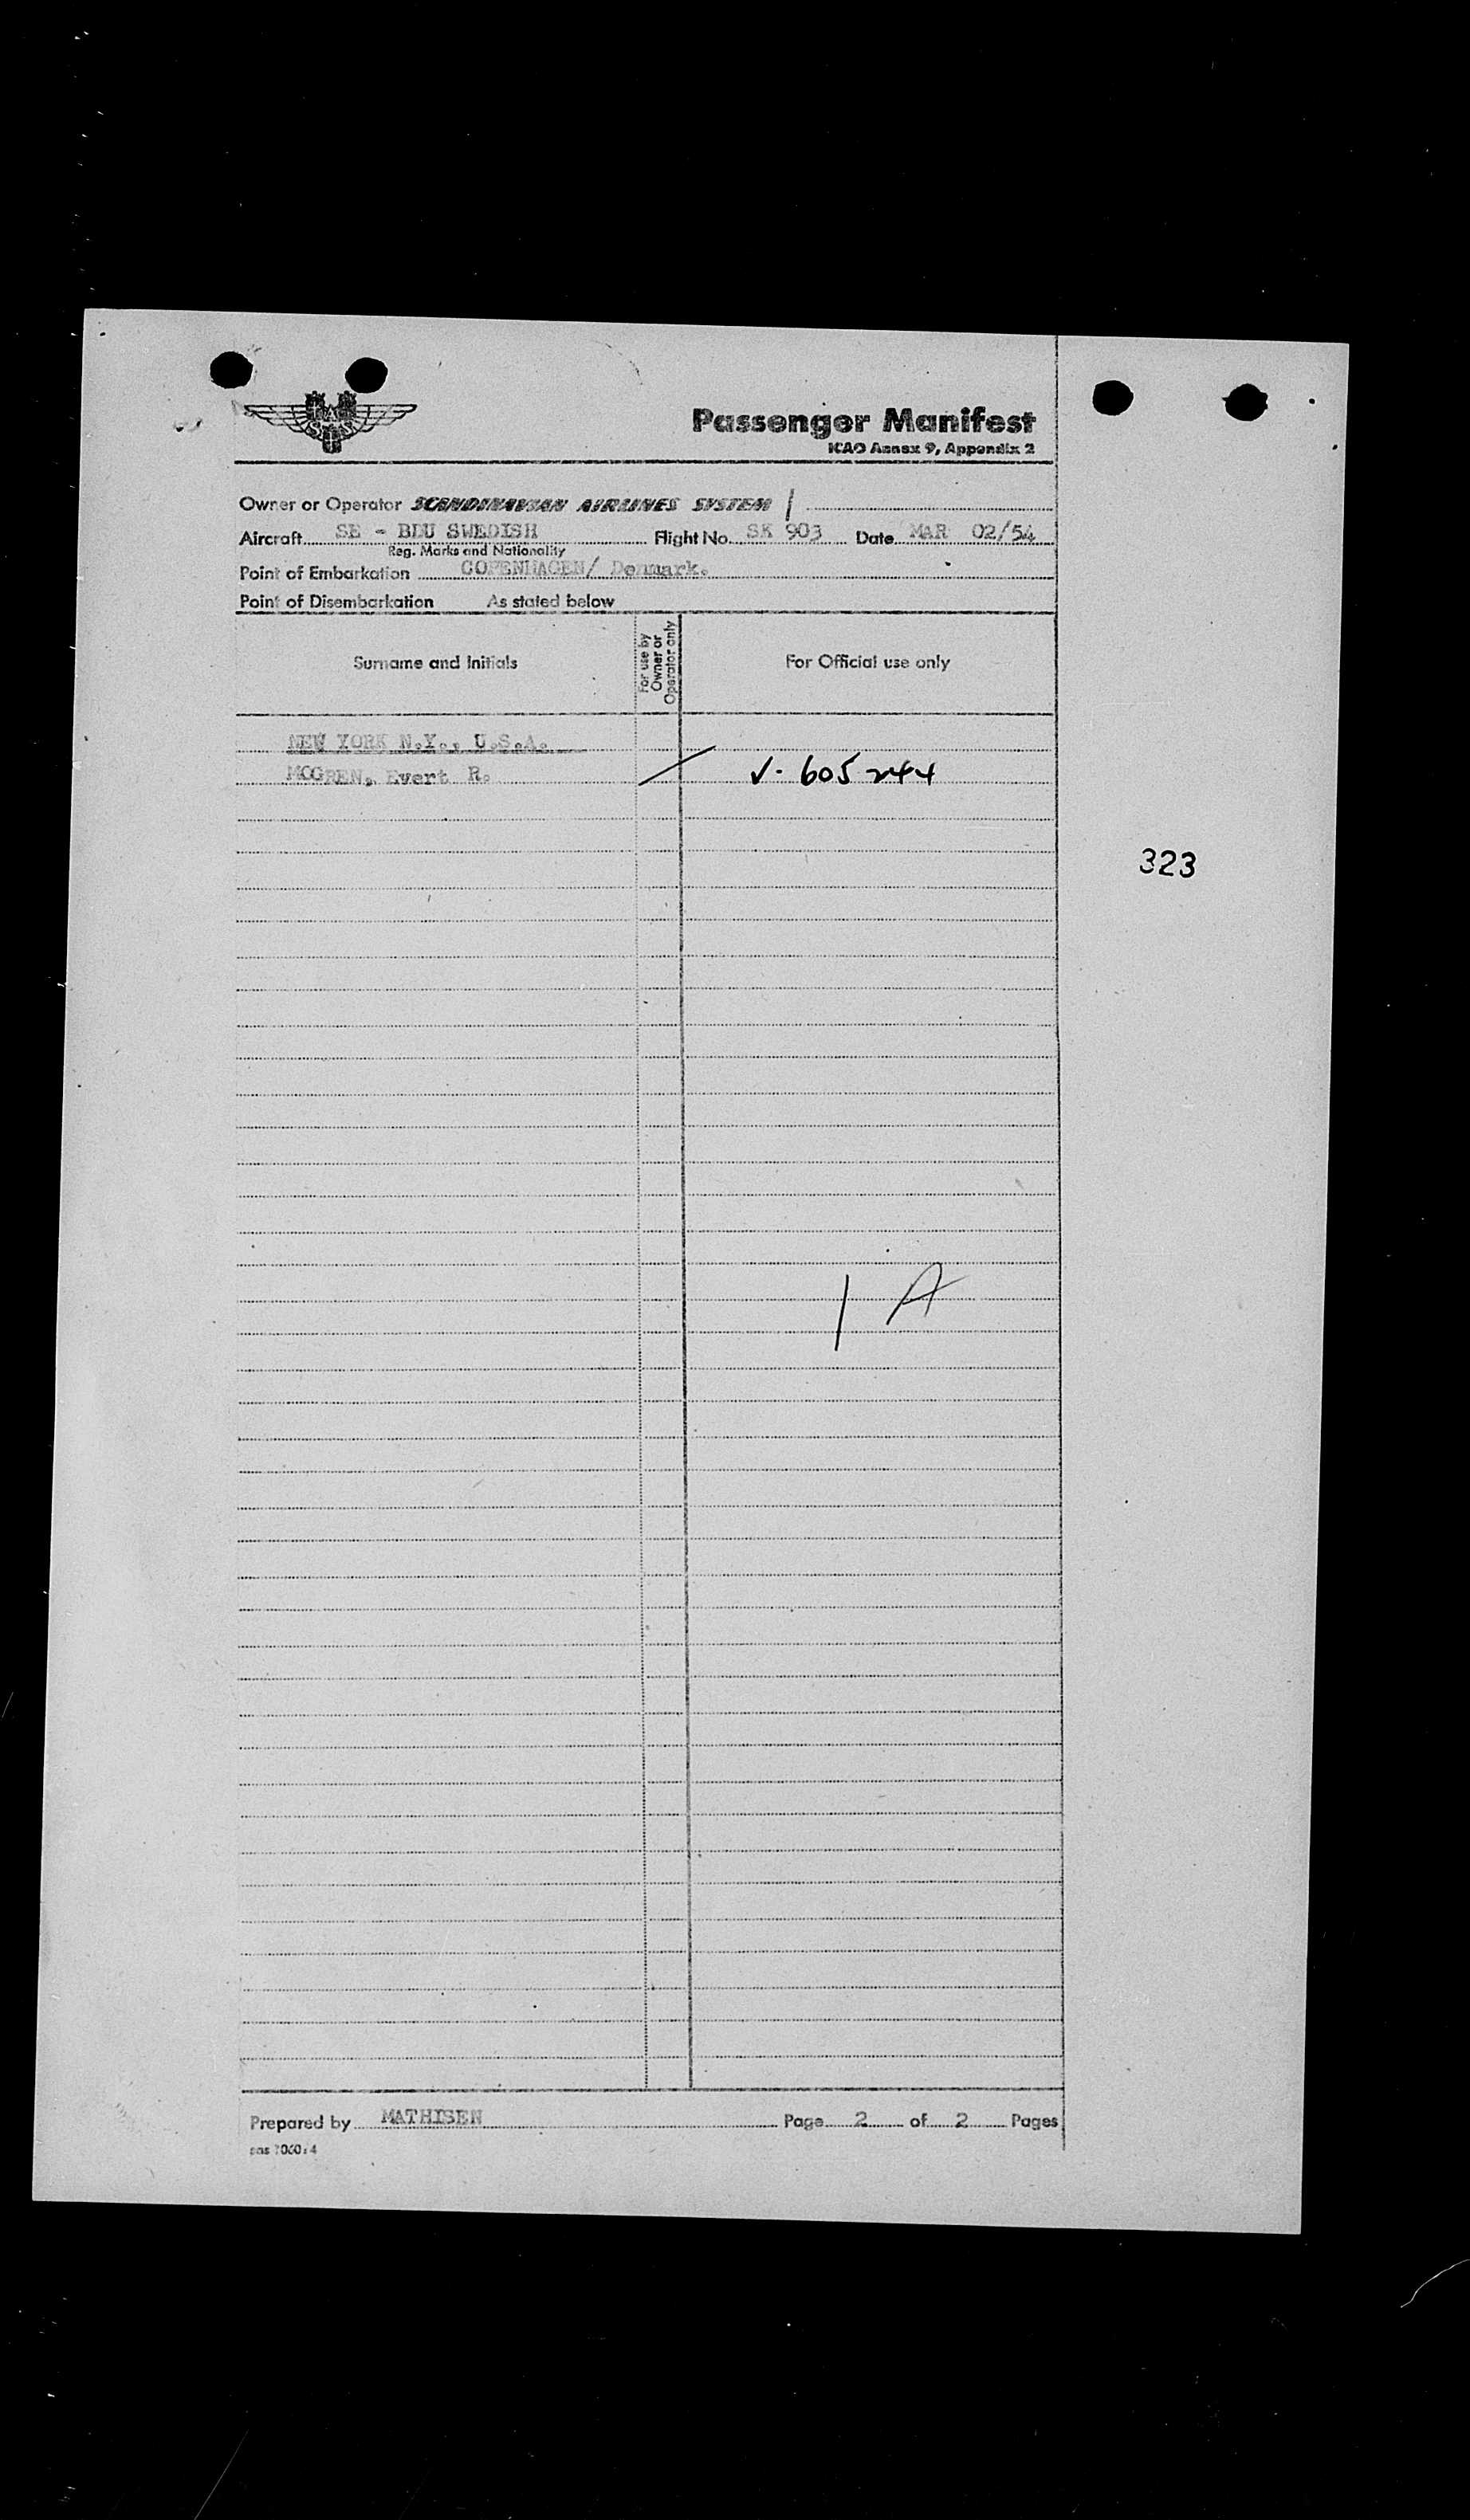 SAS
Passenger Manifest
ICAO Annex 9, Appendix 2
Owner or Operator SCANDINAVIAN AIRLINES SYSTEM /
Aircraft SE - BDU SWEDISH Flight No. SK 903 Date MAR 02/54
Reg. Marks and Nationality
Point of Embarkation COPENHAGEN/ Denmark.
Point of Disembarkation As stated below
Surname and Initials For use by Owner or Operator only For Official use only
NEW YORK N.Y., U.S.A.
MOGREN, Evert R. V- 605244
323
1 A
Prepared by MATHISEN Page 2 of 2 Pages